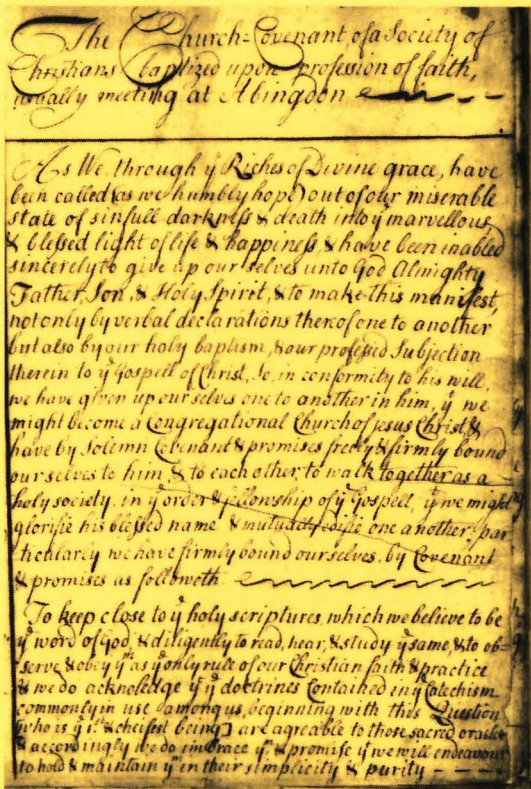 The Church-Covenant of a Society of
Christians baptized upon profession of faith,
usually meeting at Abingdon
As We through yͤ Riches of Divine grace, have
been called (as we humbly hope) out of our miserable
state of sinfull darkness & death into yͤ marvellous,
& blessed light of life & happiness, & have been inabled
sincerely to give up our selves unto God Almighty
Father, Son, & Holy Spirit, & to make this manifest,
not only by verbal declarations thereof one to another
but also by our holy baptism, & our professed Subjection
therein to yͤ Gospell of Christ, So, in conformity to his will,
we have given up our selves one to another in him, yͭ we
might become a Congregational Church of Jesus Christ &
have by Solemn Covenant & promises freely & firmly bound
our selves to him & to each other, to walk together as a
holy society, in yͤ order & fellowship of yͤ Gospell, yͭ we might
glorifie his blessed name & mutually edifie one another; par
ticularly we have firmly bound ourselves, by Covenant
& promises as followeth
To keep close to yͤ holy scriptures, which we believe to be
yͤ word of God, & diligently to read, hear, & study yͤ same, & to ob=
serve, & obey yᵐ as yͤ only rule of our Christian faith & practice
& we do acknoledge yͭ yͤ doctrines Contained in yͤ Catechism
commonly in use among us, beginning with this Question
[who is yͤ 1ˢᵗ & cheifest being] are agreable to those sacred oracles
& accordingly we do imbrace yᵐ & promise yͭ we will endeavour
to hold & maintain yᵐ in their simplicity & purity